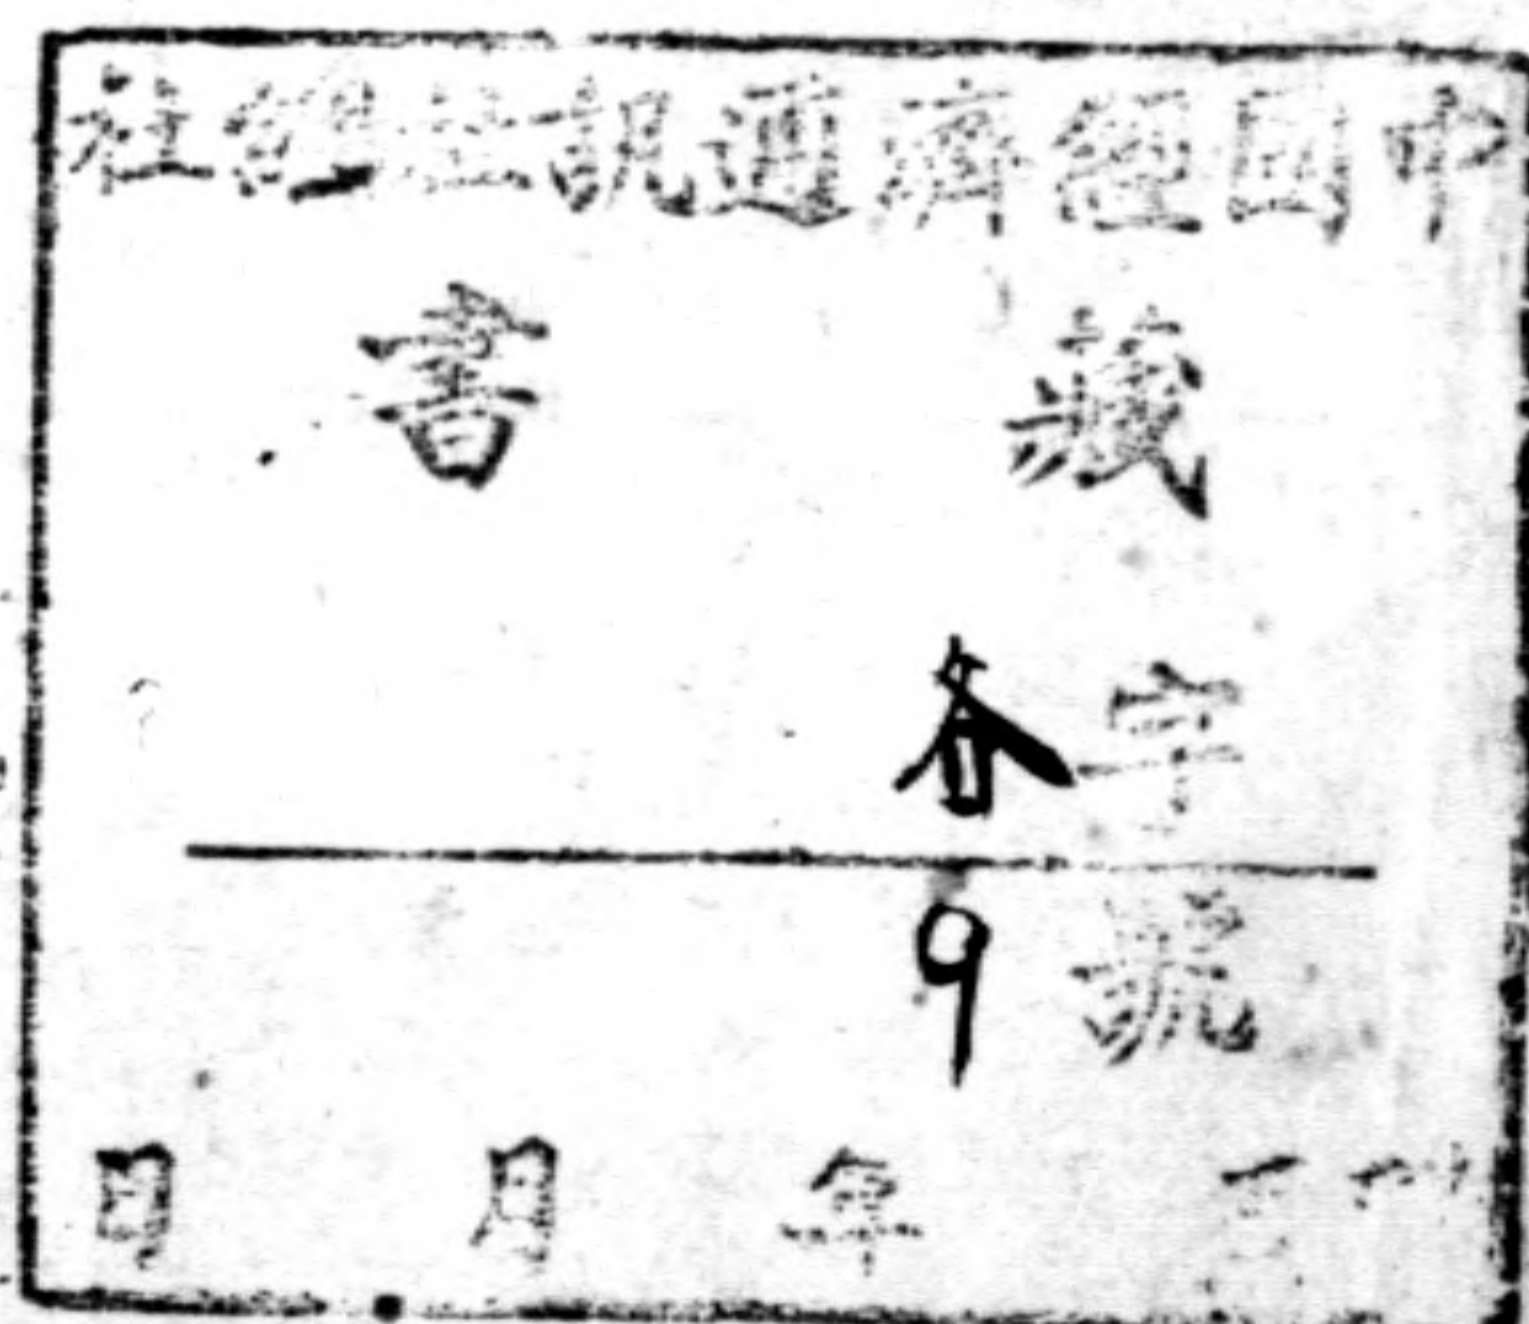 中國經濟通訊社總社
藏書
各字
9號
年月日